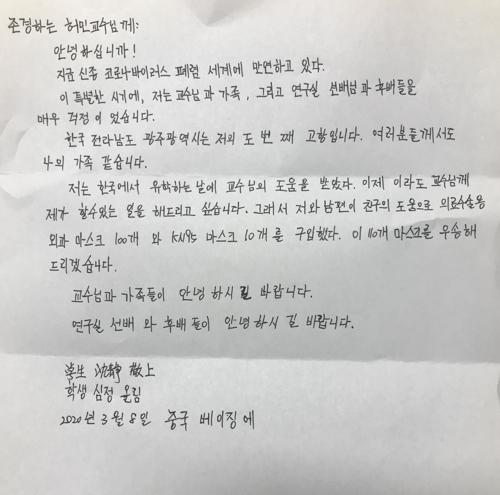 존경하는 허민교수님께:
안녕하십니까!
지금 신종 코로나바이러스 폐렴 세계에 만연하고 있다.
이 특별한 시기에, 저는 교수님과 가족, 그리고 연구실 선배님과 후배들을
매우 걱정이 있었습니다.
한국 전라남도 광주광역시는 저의 두 번 째 고향입니다. 여러분들께서도
나의 가족 같습니다.
저는 한국에서 유학하는 날에 교수님의 도움을 받았다. 이제 이라도 교수님께
제가 할수있는 일을 해드리고 싶습니다. 그래서 저와 남편이 친구의 도움으로 의료수술용
외과 마스크 100개 와 KN95 마스크 10개 를 구입했다. 이 110개 마스크를 우송해
드리겠습니다.
교수님과 가족들이 안녕 하시 길 바랍니다.
연구실 선배 와 후배 들이 안녕 하시 길 바랍니다.
學生 沈靜 敬上
학생 심정 올림
2020년 3월 8일 중국 베이징 에